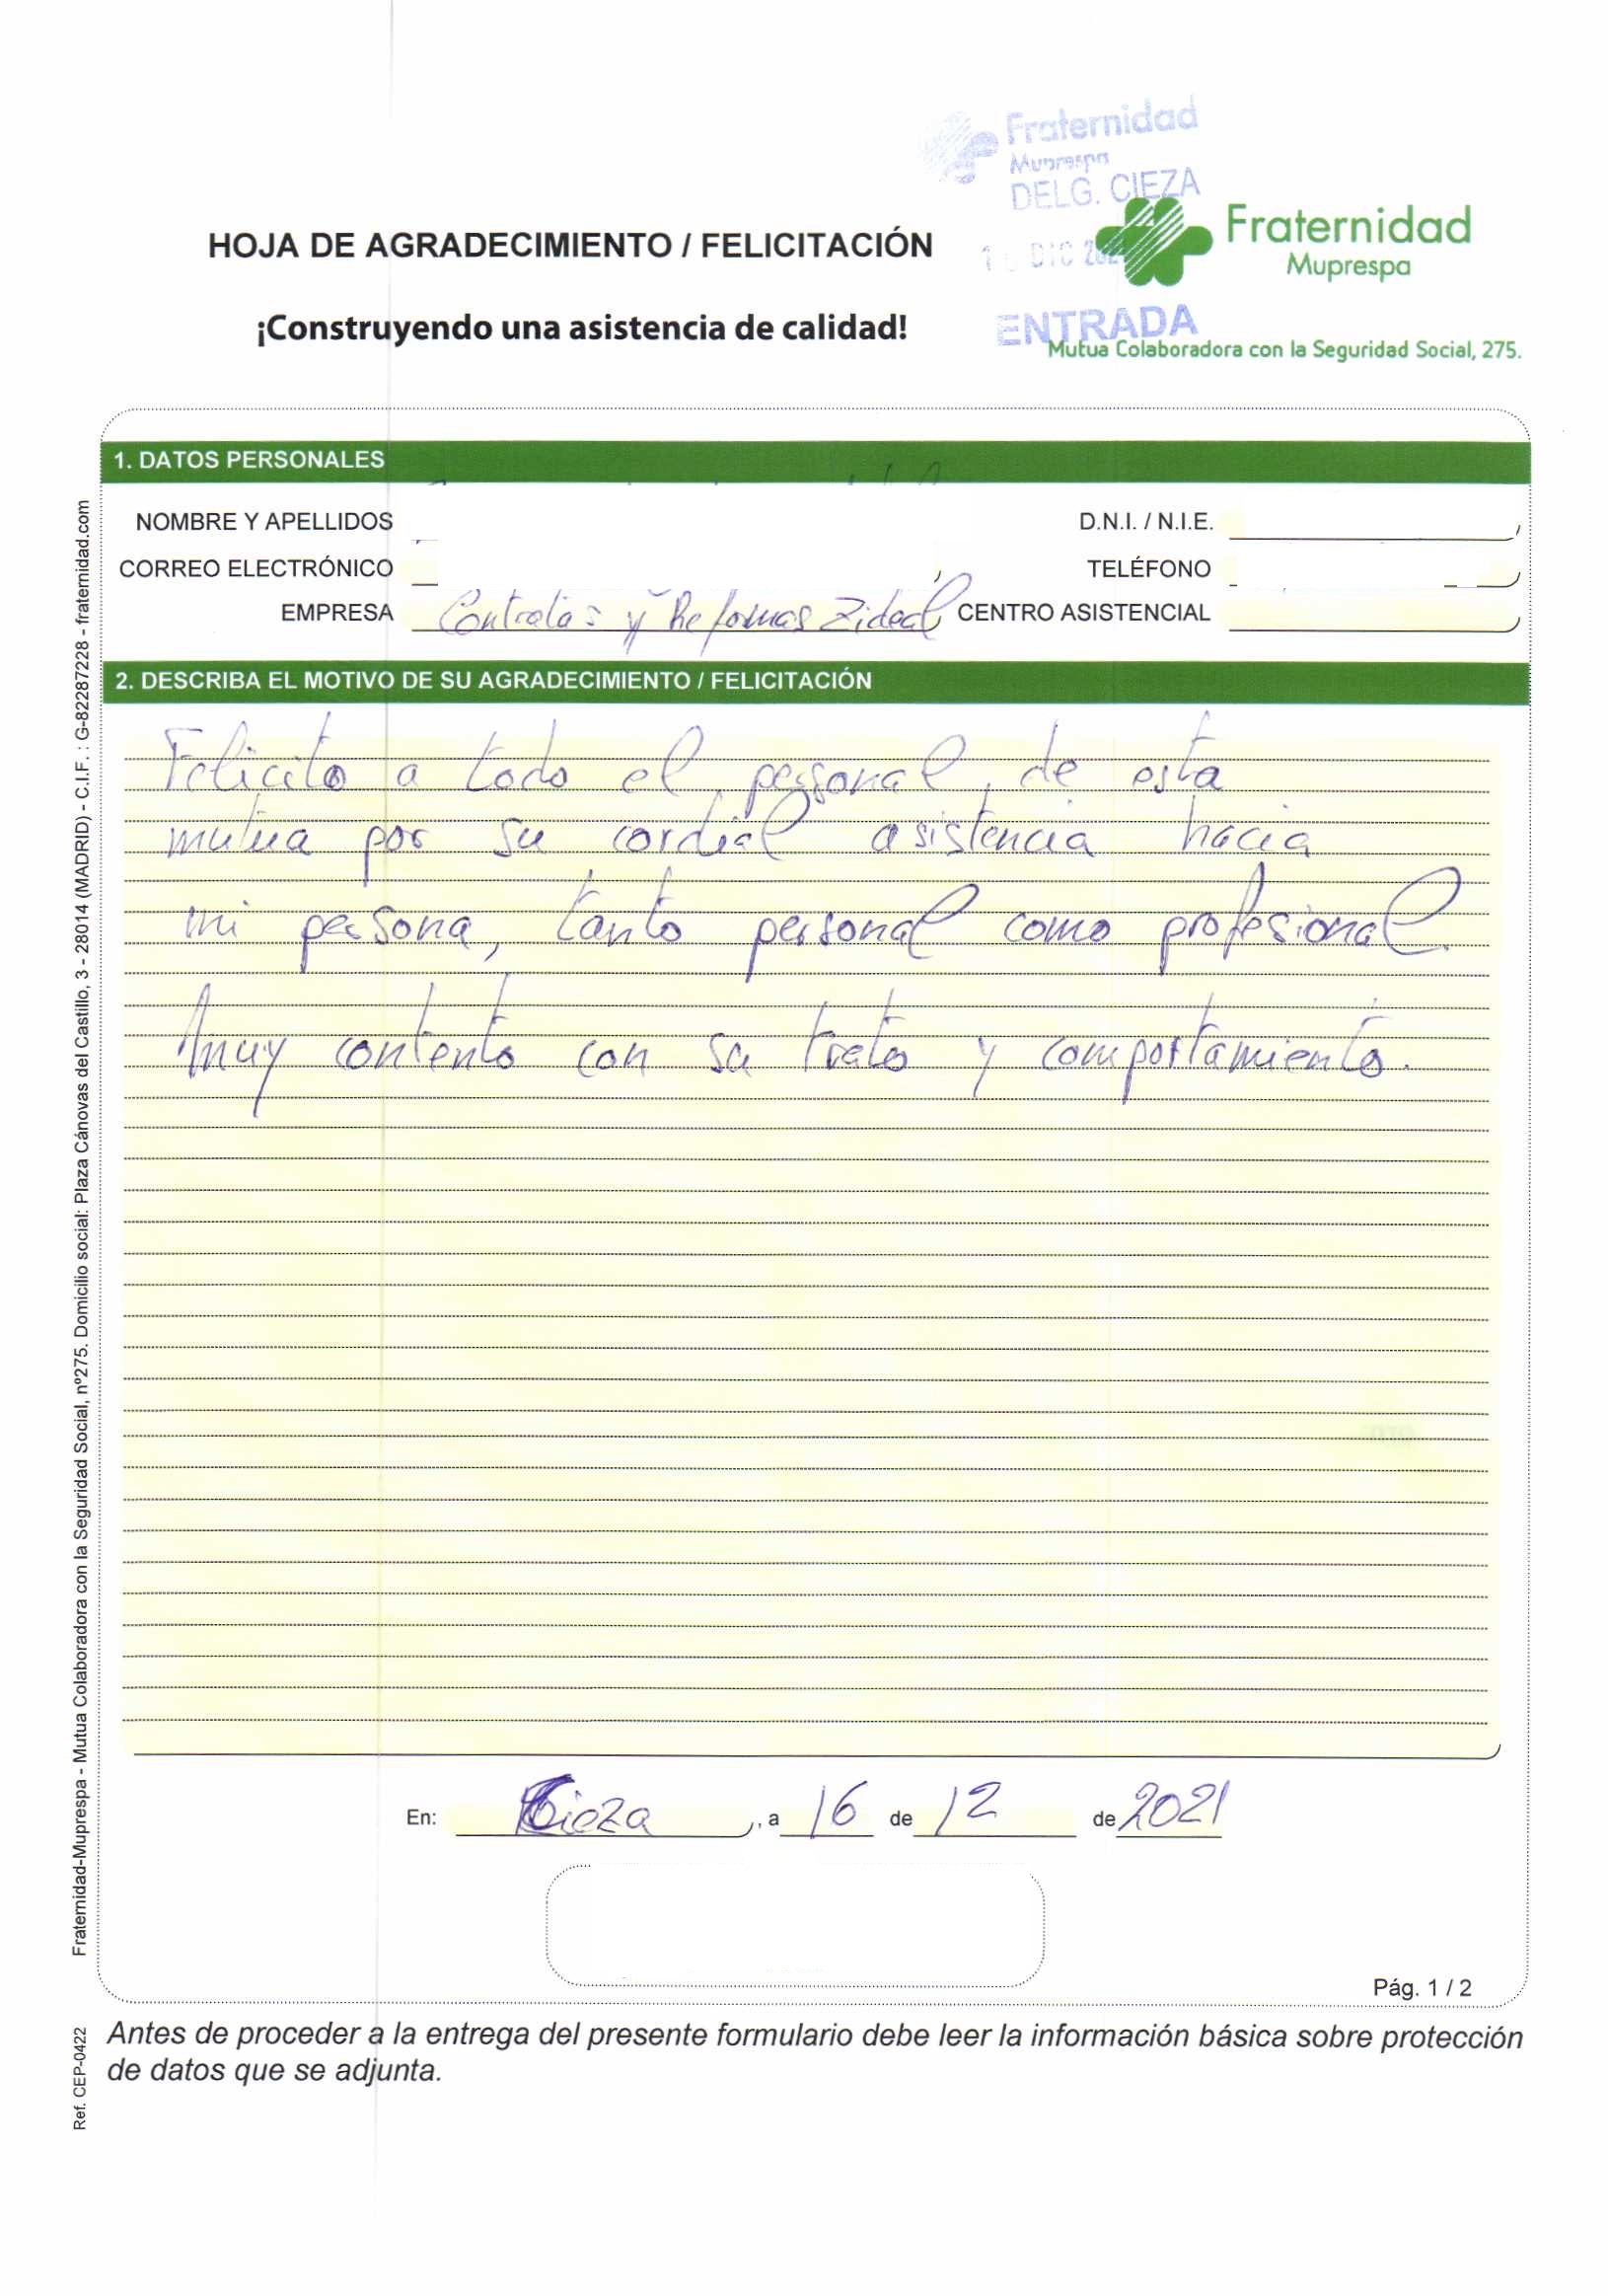 Fraternidad
Muprespa
DELG. CIEZA
DIC
ENTRADA
HOJA DE AGRADECIMIENTO / FELICITACIÓN
¡Construyendo una asistencia de calidad!
Fraternidad
Muprespa
Mutua Colaboradora con la Seguridad Social, 275.
1. DATOS PERSONALES
NOMBRE Y APELLIDOS D.N.I. / N.I.E.
CORREO ELECTRÓNICO TELÉFONO
EMPRESA Contratas y Reformas Zideal CENTRO ASISTENCIAL
2. DESCRIBA EL MOTIVO DE SU AGRADECIMIENTO / FELICITACIÓN
Felicito a todo el personal de esta
mutua por su cordial asistencia hacia
mi persona, tanto personal como profesional.
Muy contento con su trato y comportamiento.
En: Cieza, a 16 de 12 de 2021
Pág. 1 / 2
Antes de proceder a la entrega del presente formulario debe leer la información básica sobre protección
de datos que se adjunta.
Fraternidad-Muprespa - Mutua Colaboradora con la Seguridad Social, nº275. Domicilio social: Plaza Cánovas del Castillo, 3 - 28014 (MADRID) - C.I.F. : G-82287228 - fraternidad.com
Ref. CEP-0422